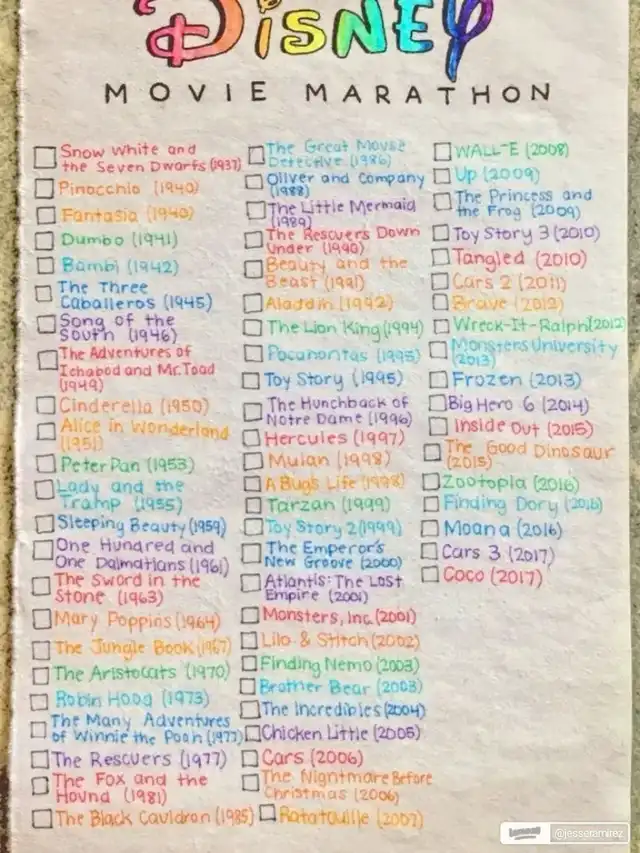 DISNEY
MOVIE MARATHON
Snow White and
the Seven Dwarfs (1937)
Pinocchio (1940)
Fantasia (1940)
Dumbo (1941)
Bambi (1942)
The Three
Caballeros (1945)
Song of the
South (1946)
The Adventures of
Ichabod and Mr. Toad
(1949)
Cinderella (1950)
Alice in Wonderland
(1951)
Peter Pan (1953)
Lady and the
Tramp (1955)
Sleeping Beauty (1959)
One Hundred and
One Dalmatians (1961)
The Sword in the
Stone (1963)
Mary Poppins (1964)
The Jungle Book (1967)
The Aristocats (1970)
Robin Hood (1973)
The Many Adventures
of Winnie the Pooh (1977)
The Rescuers (1977)
The Fox and the
Hound (1981)
The Black Cauldron (1985)
The Great Mouse
Detective (1986)
Oliver and Company
(1988)
The Little Mermaid
(1989)
The Rescuers Down
Under (1990)
Beauty and the
Beast (1991)
Aladdin (1992)
The Lion King (1994)
Pocahontas (1995)
Toy Story (1995)
The Hunchback of
Notre Dame (1996)
Hercules (1997)
Mulan (1998)
A Bug's Life (1998)
Tarzan (1999)
Toy Story 2 (1999)
The Emperor's
New Groove (2000)
Atlantis: The Lost
Empire (2001)
Monsters, Inc. (2001)
Lilo & Stitch (2002)
Finding Nemo (2003)
Brother Bear (2003)
The Incredibles (2004)
Chicken Little (2005)
Cars (2006)
The Nightmare Before
Christmas (2006)
Ratatouille (2007)
WALL-E (2008)
Up (2009)
The Princess and
the Frog (2009)
Toy Story 3 (2010)
Tangled (2010)
Cars 2 (2011)
Brave (2012)
Wreck-It-Ralph (2012)
Monsters University
(2013)
Frozen (2013)
Big Hero 6 (2014)
Inside Out (2015)
The Good Dinosaur
(2015)
Zootopia (2016)
Finding Dory (2016)
Moana (2016)
Cars 3 (2017)
Coco (2017)
@jesseramirez